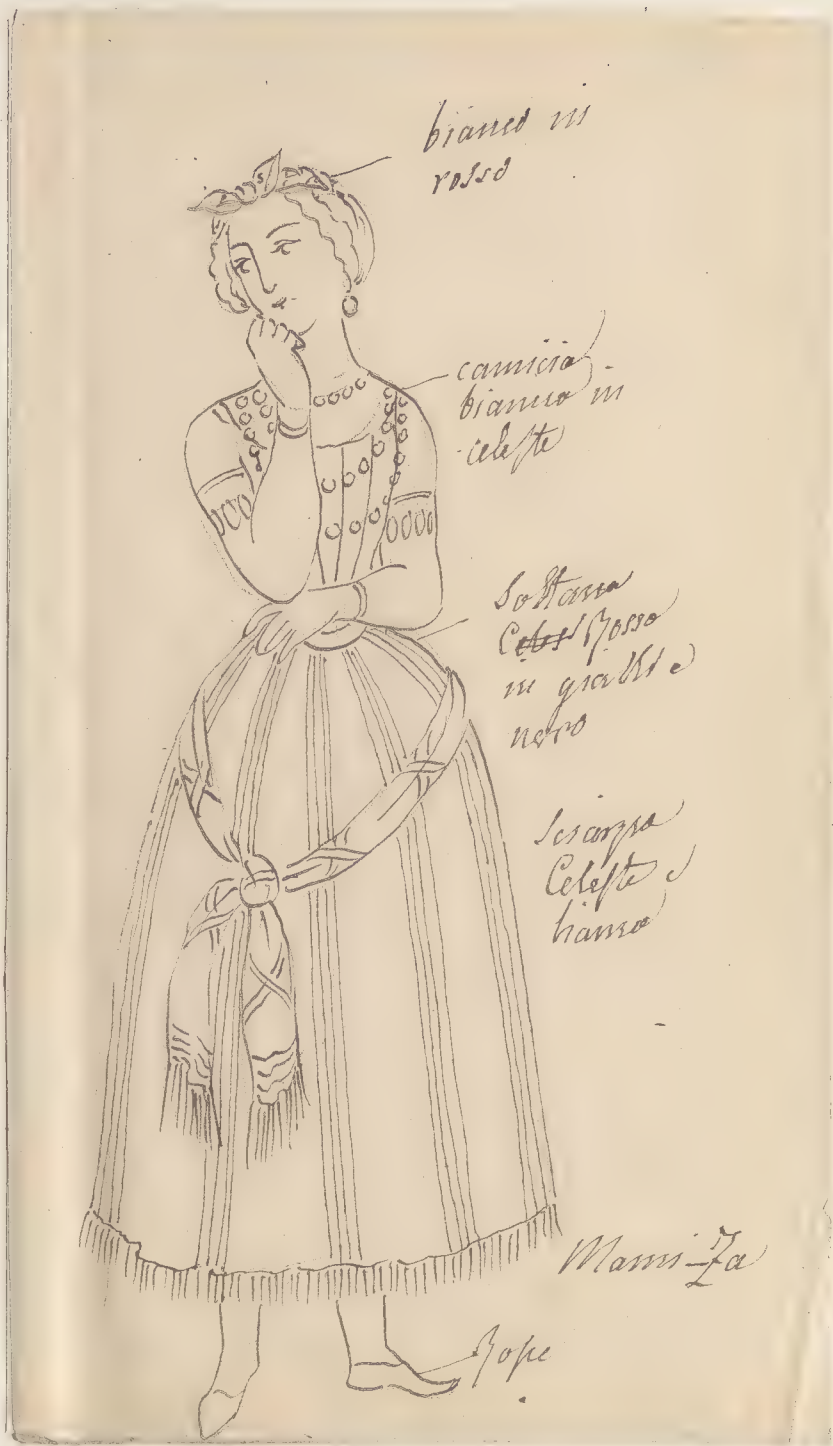 bianco in
rosso
camicia
bianca in
celeste
Sottana
Rosso
in gialli e
nero
Sciarpa
Celeste e
bianca
Mami-Za
Rosse